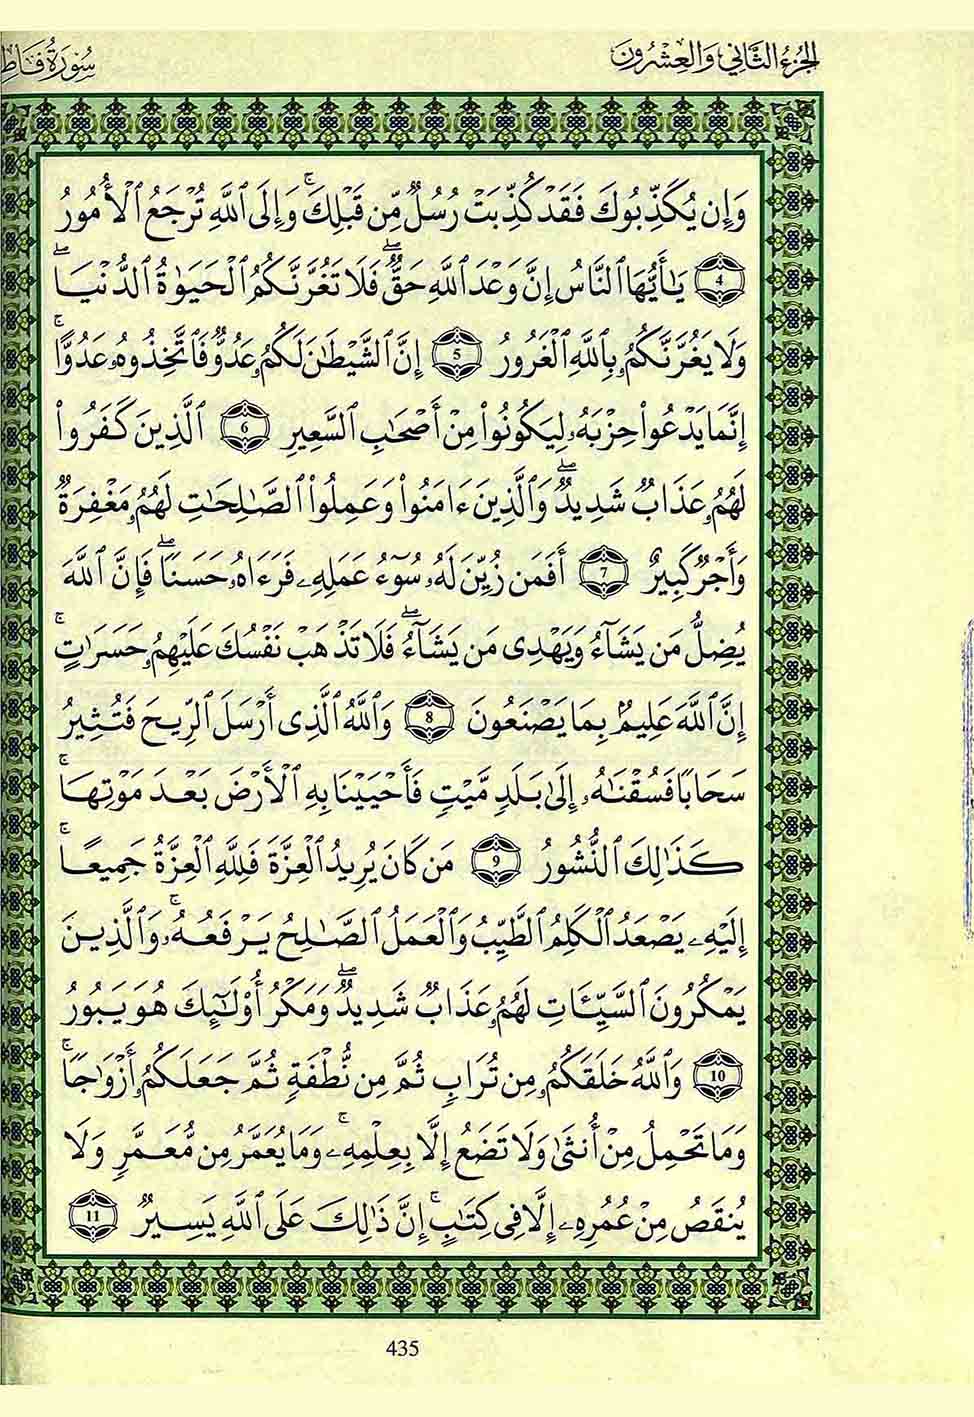 الجزء الثاني والعشرون
سورة فاط
وَإِن يُكَذِّبُوكَ فَقَدْ كُذِّبَتْ رُسُلٌ مِّن قَبْلِكَ ۚ وَإِلَى ٱللَّهِ تُرْجَعُ ٱلْأُمُورُ
4 يَٰٓأَيُّهَا ٱلنَّاسُ إِنَّ وَعْدَ ٱللَّهِ حَقٌّ ۖ فَلَا تَغُرَّنَّكُمُ ٱلْحَيَوٰةُ ٱلدُّنْيَا ۖ
وَلَا يَغُرَّنَّكُمُۥ بِٱللَّهِ ٱلْغَرُورُ 5 إِنَّ ٱلشَّيْطَٰنَ لَكُمُۥ عَدُوٌّ فَٱتَّخِذُوهُۥ عَدُوًّا ۚ
إِنَّمَا يَدْعُوا۟ حِزْبَهُۥ لِيَكُونُوا۟ مِنْ أَصْحَٰبِ ٱلسَّعِيرِ 6 ٱلَّذِينَ كَفَرُوا۟
لَهُمُۥ عَذَابٌ شَدِيدٌ ۖ وَٱلَّذِينَ ءَامَنُوا۟ وَعَمِلُوا۟ ٱلصَّٰلِحَٰتِ لَهُمُۥ مَغْفِرَةٌ
وَأَجْرٌ كَبِيرٌ 7 أَفَمَن زُيِّنَ لَهُۥ سُوٓءُ عَمَلِهِۦ فَرَءَاهُۥ حَسَنًا ۖ فَإِنَّ ٱللَّهَ
يُضِلُّ مَن يَشَآءُ وَيَهْدِى مَن يَشَآءُ ۖ فَلَا تَذْهَبْ نَفْسُكَ عَلَيْهِمُۥ حَسَرَٰتٍ ۚ
إِنَّ ٱللَّهَ عَلِيمٌۢ بِمَا يَصْنَعُونَ 8 وَٱللَّهُ ٱلَّذِى أَرْسَلَ ٱلرِّيحَ فَتُثِيرُ
سَحَابًا فَسُقْنَٰهُۥ إِلَىٰ بَلَدٍ مَّيْتٍ فَأَحْيَيْنَا بِهِ ٱلْأَرْضَ بَعْدَ مَوْتِهَا ۚ
كَذَٰلِكَ ٱلنُّشُورُ 9 مَن كَانَ يُرِيدُ ٱلْعِزَّةَ فَلِلَّهِ ٱلْعِزَّةُ جَمِيعًا ۚ
إِلَيْهِۦ يَصْعَدُ ٱلْكَلِمُ ٱلطَّيِّبُ وَٱلْعَمَلُ ٱلصَّٰلِحُ يَرْفَعُهُۥ ۚ وَٱلَّذِينَ
يَمْكُرُونَ ٱلسَّيِّـَٔاتِ لَهُمُۥ عَذَابٌ شَدِيدٌ ۖ وَمَكْرُ أُو۟لَٰٓئِكَ هُوَ يَبُورُ
10 وَٱللَّهُ خَلَقَكُمُۥ مِن تُرَابٍ ثُمَّ مِن نُّطْفَةٍ ثُمَّ جَعَلَكُمُۥ أَزْوَٰجًا ۚ
وَمَا تَحْمِلُ مِنْ أُنثَىٰ وَلَا تَضَعُ إِلَّا بِعِلْمِهِۦ ۚ وَمَا يُعَمَّرُ مِن مُّعَمَّرٍ وَلَا
يُنقَصُ مِنْ عُمُرِهِۦ إِلَّا فِى كِتَٰبٍ ۚ إِنَّ ذَٰلِكَ عَلَى ٱللَّهِ يَسِيرٌ 11
435